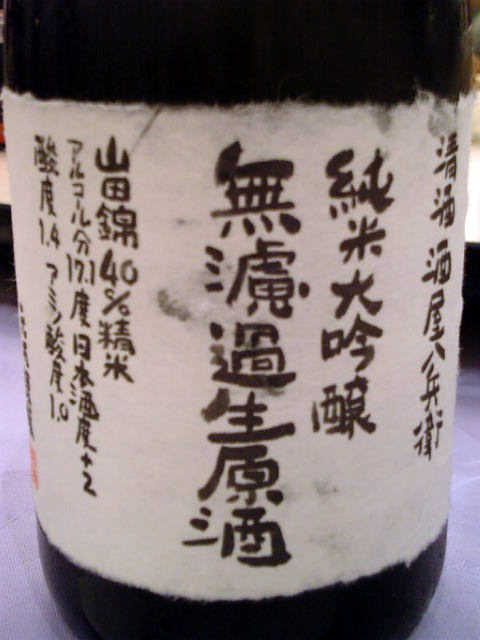 清酒 酒屋八兵衛
純米大吟醸
無濾過生原酒
山田錦40%精米
アルコール分17.1度日本酒度+2
酸度1.4 アミノ酸度1.0